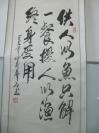 供人以鱼只解
一餐授人以渔
终身受用